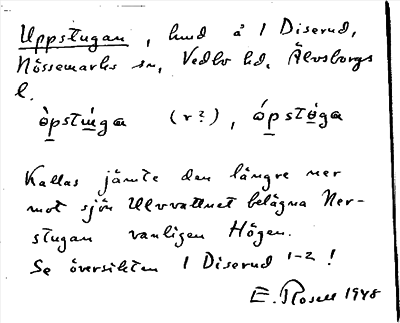 Uppstugan, hmd å 1 Diserud,
Nössemarks sn, Vedbo hd, Älvsborgs
l.
òpstuga (r?), ópstøga
Kallas jämte den längre ner
mot sjön Ulvvattnet belägna Ner-
stugan vanligen Högen.
Se översikten 1 Diserud 1-2!
E. Rosell 1948